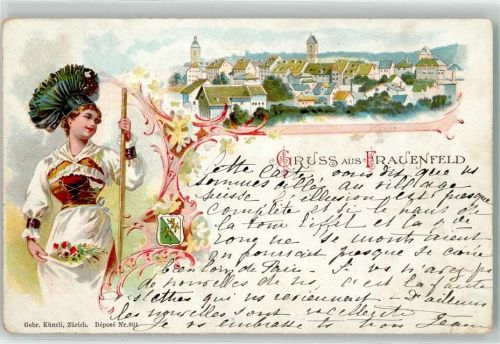 GRUSS AUS FRAUENFELD
Cette carte vous dit que ns
sommes allés au village
Suisse l'illusion est presque
complète et si le haut de
la tour Eiffel et la gde
roue ne se montraient
on pourrait presque se croire
bien loin de Paris
de nouvelles de ns, c'est la faute
lettres qui ns reviennent - D'ailleurs
les nouvelles sont
Je vs embrasse
Gebr. Künzli, Zürich. Déposé Nr. 801